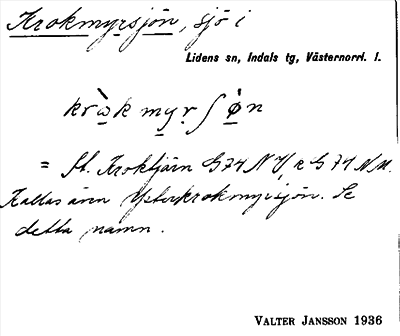 Krokmyrsjön, sjö i
Lidens sn, Indals tg, Västernorrl. l.
kròk myr ʃ ø̀ n
= St. Kroktjärn G74 NV, G74 NM.
Kallas även Ysterkrokmyrsjön. Se
detta namn.
VALTER JANSSON 1936